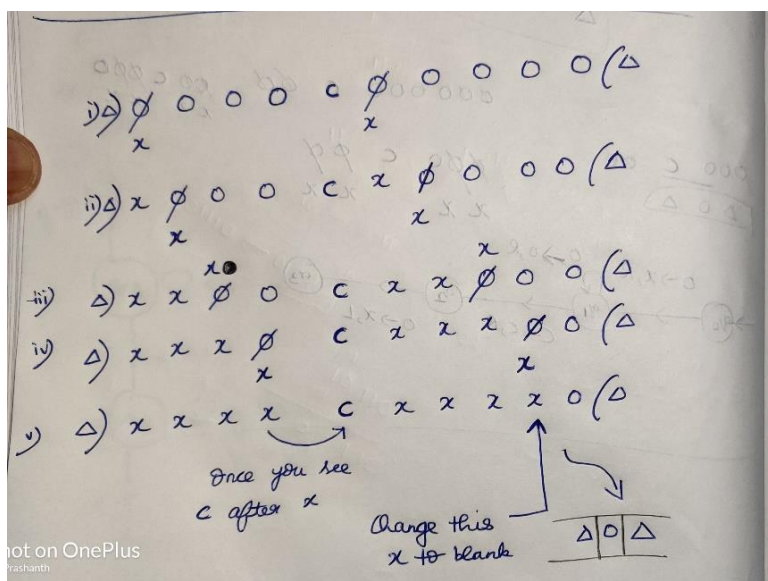 i) Δ) 0 0 0 0 c 0 0 0 0 0 (Δ
x x
ii) Δ) x 0 0 0 c x 0 0 0 0 (Δ
x x
x x
iii) Δ) x x 0 0 c x x 0 0 0 (Δ
iv) Δ) x x x 0 c x x x 0 0 (Δ
x x
v) Δ) x x x x c x x x x 0 (Δ
Once you see
c after x
Change this
x to blank
Δ 0 Δ
hot on OnePlus
Prashanth